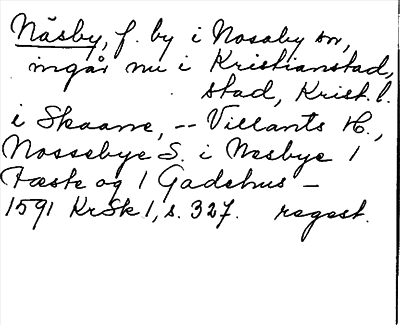 Näsby, f. by i Nosaby sn,
ingår nu i Kristianstad,
stad, Krist. l.
i Skaane, -- Villants H.,
Nossebye S. i Nesbye 1
Fæste og 1 Gadehus –
1591 KrSk 1, s. 327. regest.